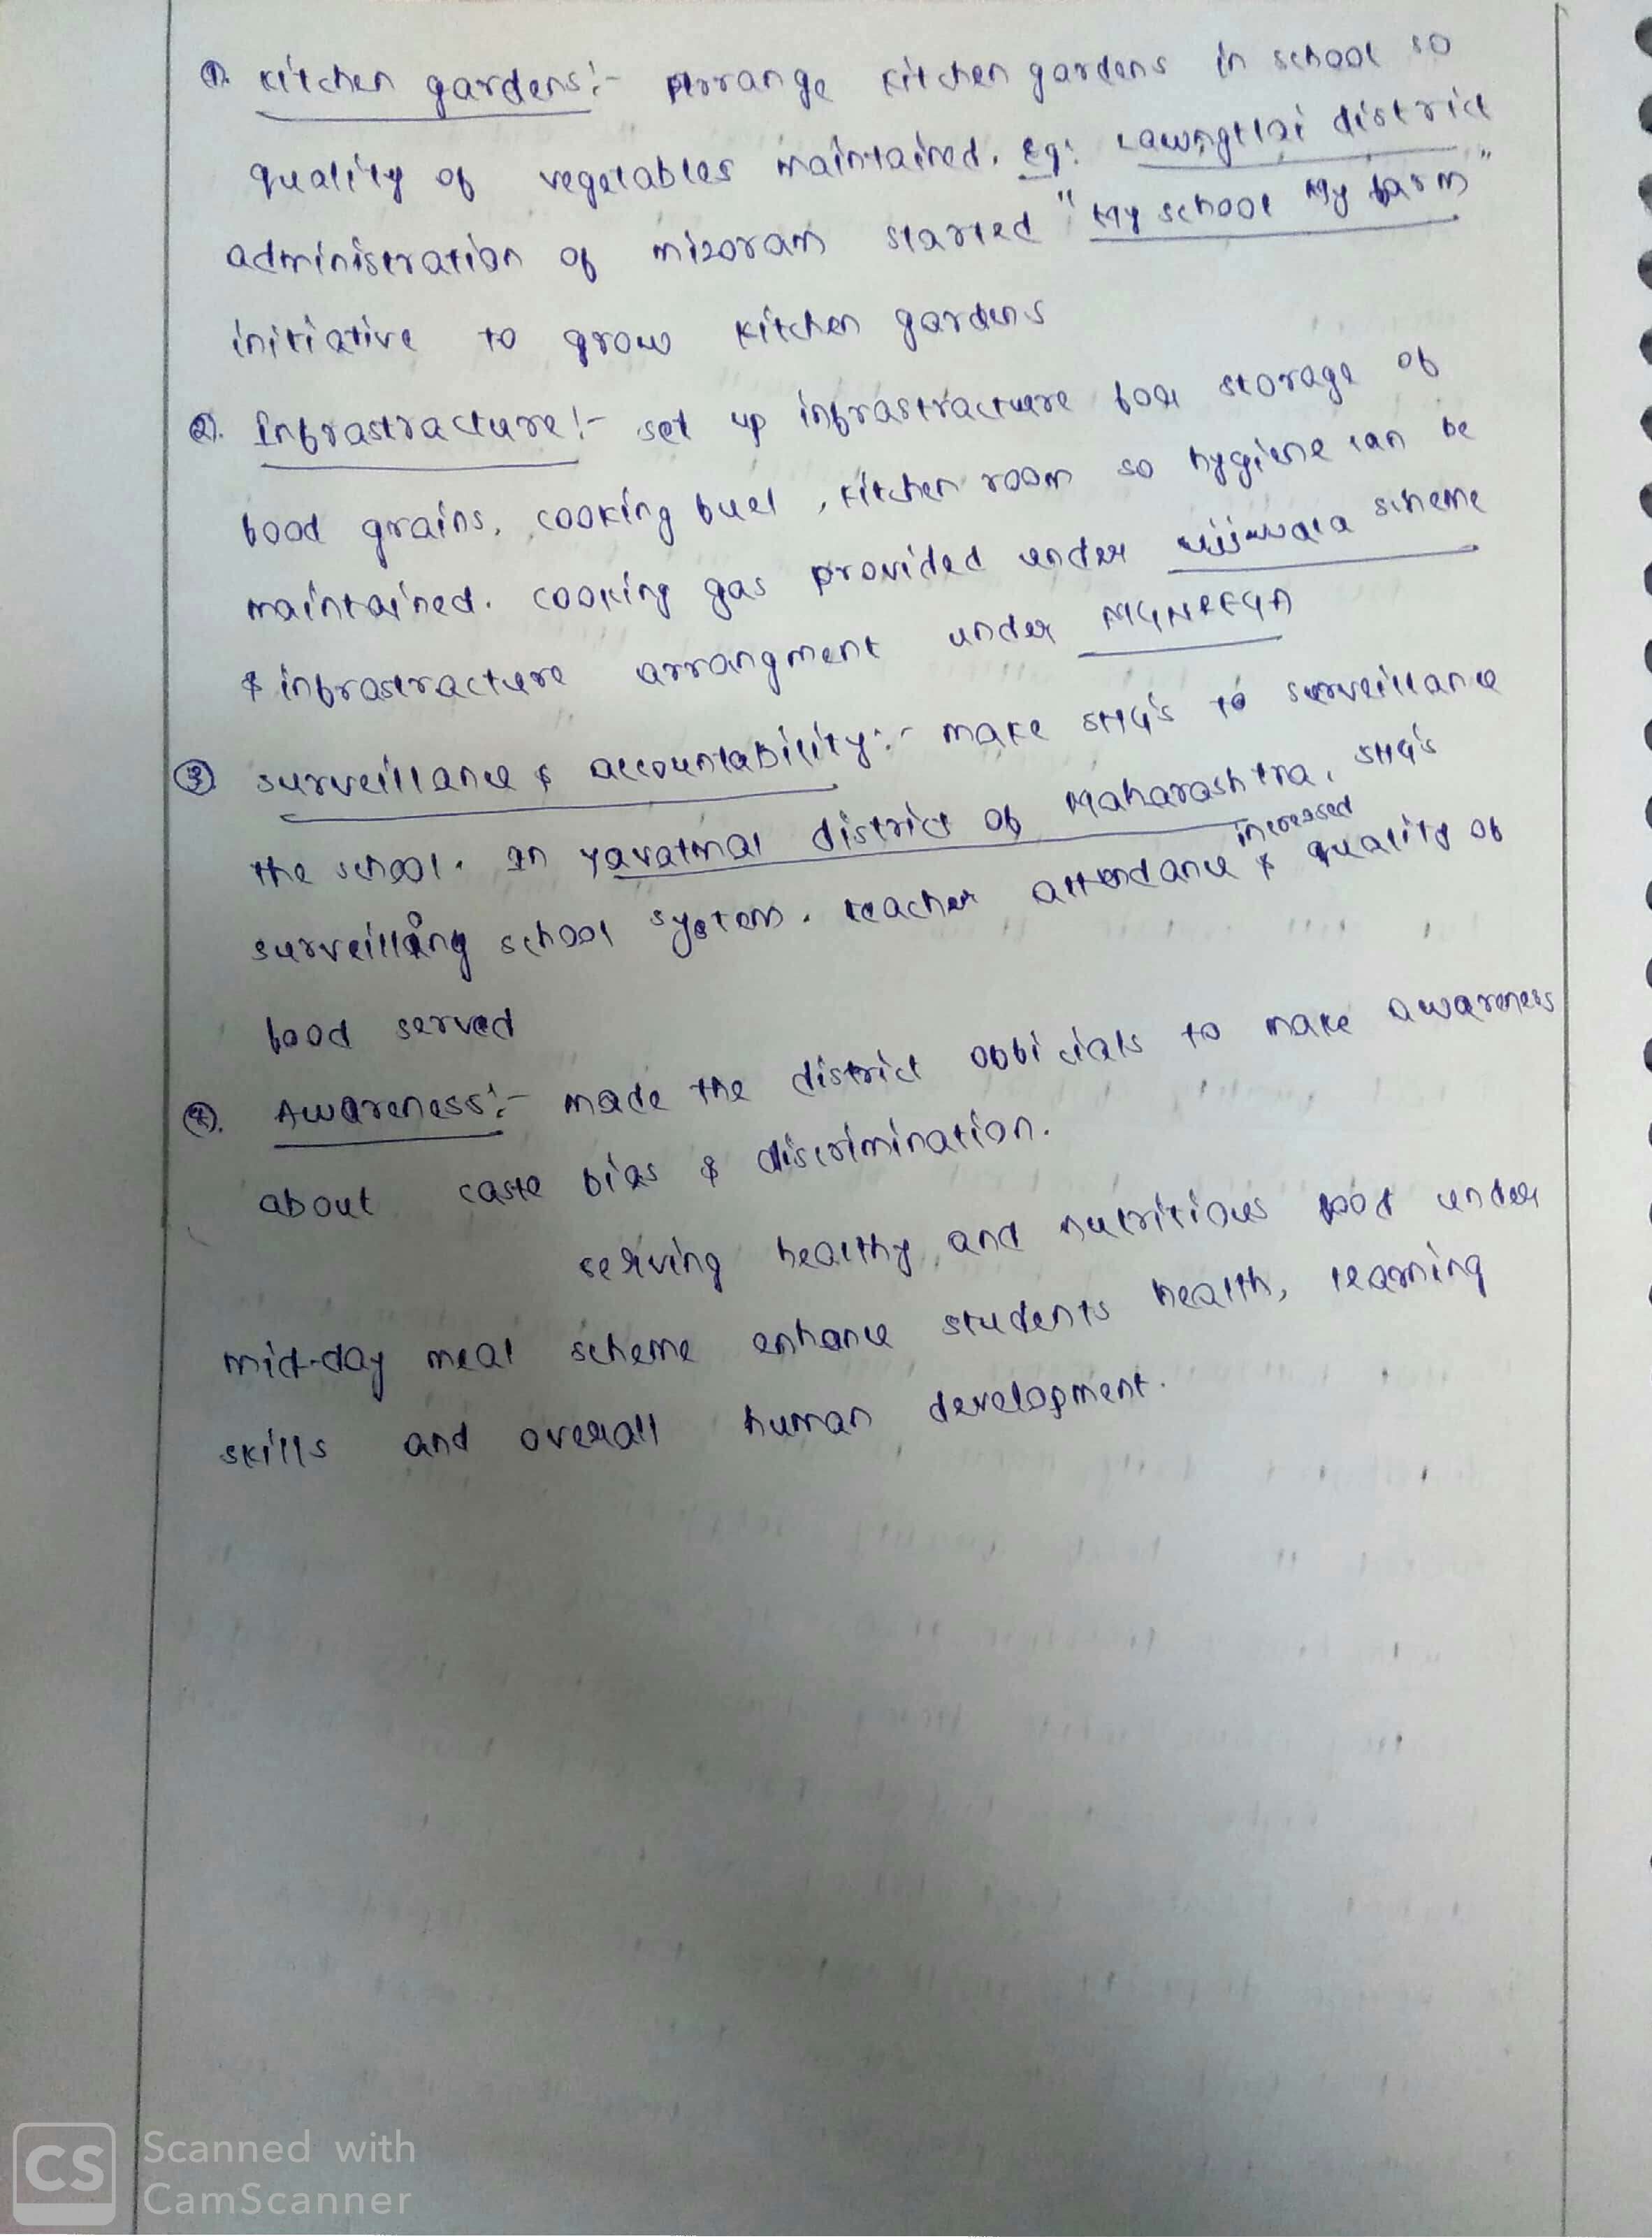 ①. Kitchen gardens:- Arrange kitchen gardens in school so
quality of vegetables maintained. Eg: Lawngtlai district
administration of mizoram started "My school My farm"
initiative to grow kitchen gardens
②. Infrastracture:- set up infrastracture for storage of
food grains, cooking fuel, kitchen room so hygiene can be
maintained. cooking gas provided under ujjwala scheme
& infrastracture arrangment under MGNREGA
③ surveillance & accountability:- make SHG's to surveillance
the school. In Yavatmal district of Maharashtra, SHG's
surveilling school system. teacher attendance increased & quality of
food served
④. Awareness:- made the district officials to make awareness
about caste bias & discrimination.
serving healthy and nutritious food under
mid-day meal scheme enhance students health, learning
skills and overall human development.
CS Scanned with
CamScanner